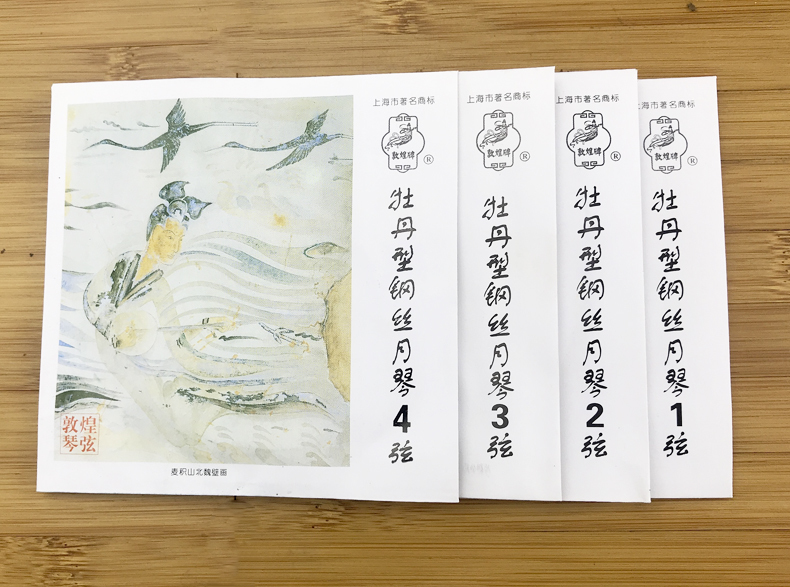 上海市著名商标
敦煌牌
®
牡丹型钢丝月琴4弦
敦煌
琴弦
麦积山北魏壁画
上海市著名商标
敦煌牌
®
牡丹型钢丝月琴3弦
上海市著名商标
敦煌牌
®
牡丹型钢丝月琴2弦
上海市著名商标
敦煌牌
®
牡丹型钢丝月琴1弦